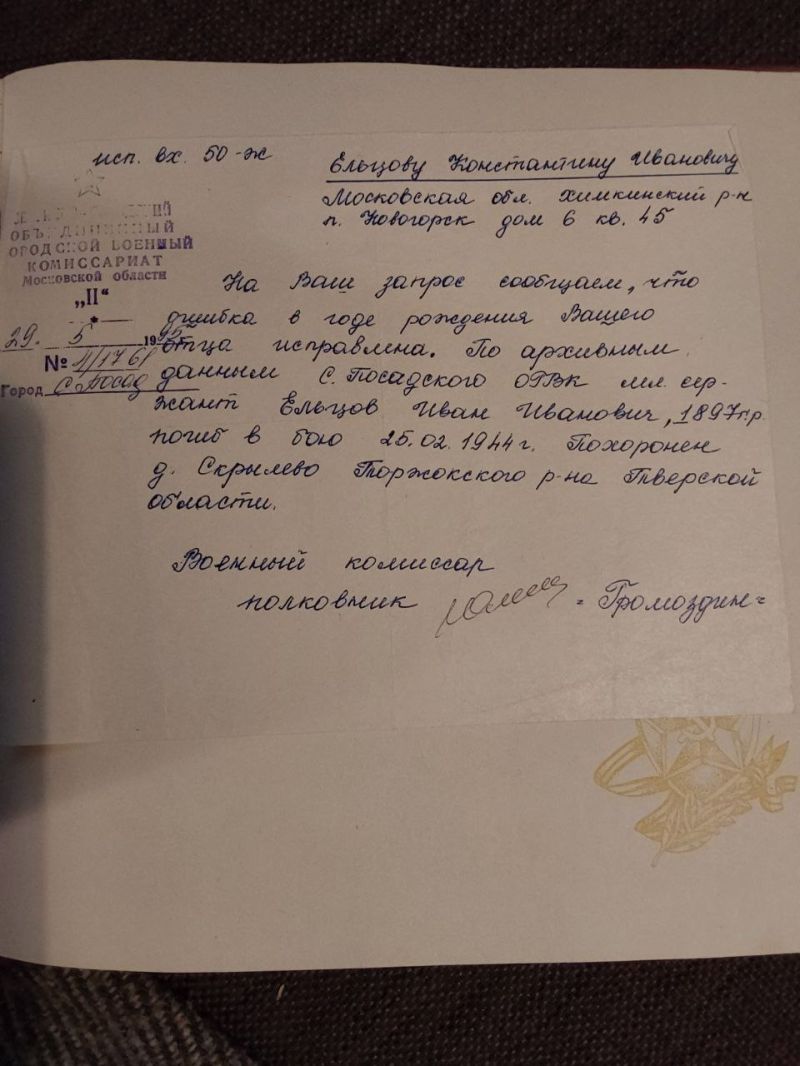 исп. вх. 50-ж
Ельцову Константину Ивановичу
Московская обл. Химкинский р-н
п. Новогорск дом 6 кв. 45
ОБЪЕДИНЕННЫЙ
ГОРОДСКОЙ ВОЕННЫЙ
КОМИССАРИАТ
Московской области
„II“
29. 5 1995
№ II/1761
Город С. Посад
На Ваш запрос сообщаем, что
ошибка в годе рождения Вашего
отца исправлена. По архивным
данным С. Посадского ОГВК мл. сер-
жант Ельцов Иван Иванович, 1897 г.р.
погиб в бою 25.02.1944 г. Похоронен
д. Скрылево Торжокского р-на Тверской
области.
Военный комиссар
полковник = Громоздин =